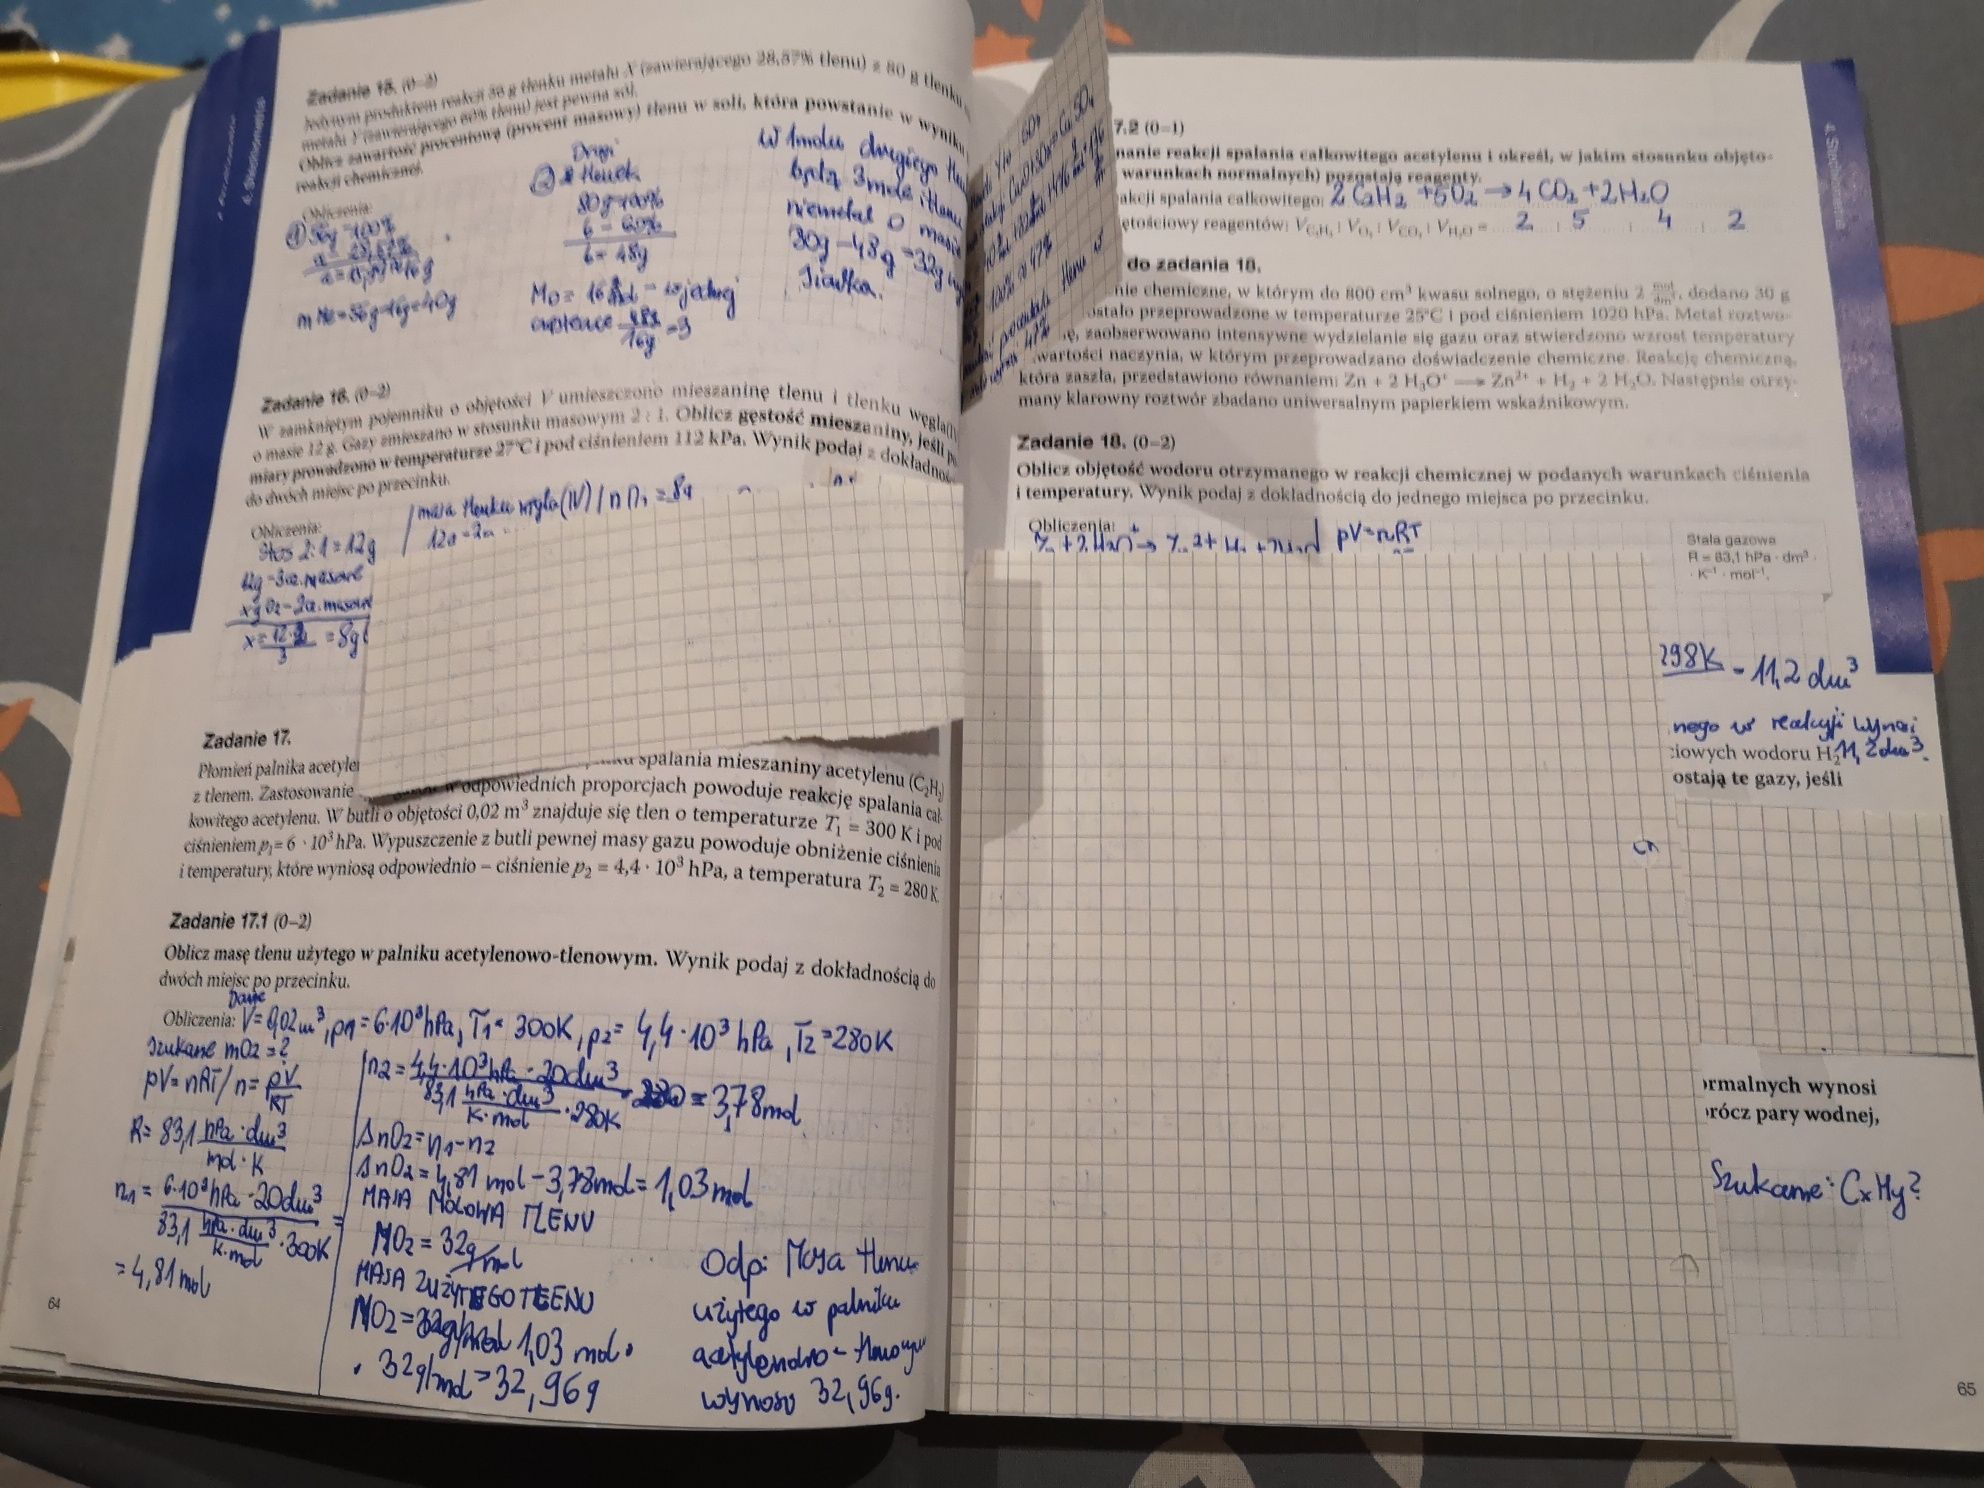 4. Stechiometria
Zadanie 15. (0–2)
Jedynym produktem reakcji 56 g tlenku metalu X (zawierającego 28,57% tlenu) z 80 g tlenku
metalu Y (zawierającego 60% tlenu) jest pewna sól.
Oblicz zawartość procentową (procent masowy) tlenu w soli, która powstanie w wyniku
reakcji chemicznej.
Obliczenia:
① 56g - 100%
a - 28,57%
mMe = 56g - 16g = 40g
Drugi
② tlenek
80g - 100%
b - 60%
b = 48g
Mo = 16 - w jednej
48g
16g = 3
W 1 molu drugiego
będą 3 mole
niemetal o masie
80g - 48g = 32g
Siarka.
Zadanie 16. (0–2)
W zamkniętym pojemniku o objętości V umieszczono mieszaninę tlenu i tlenku
o masie 12 g. Gazy zmieszano w stosunku masowym 2 : 1. Oblicz gęstość mieszaniny, jeśli
miary prowadzono w temperaturze 27°C i pod ciśnieniem 112 kPa. Wynik podaj z
do dwóch miejsc po przecinku.
Obliczenia:
Stos 2:1 = 12g
x = 12·2 / 3 = 8g
masa tlenku węgla (IV) = 8g
Zadanie 17.
Płomień palnika
spalania mieszaniny acetylenu (C₂H₂)
z tlenem. Zastosowanie
w odpowiednich proporcjach powoduje reakcję spalania cał-
kowitego acetylenu. W butli o objętości 0,02 m³ znajduje się tlen o temperaturze T₁ = 300 K i pod
ciśnieniem p₁= 6 · 10³ hPa. Wypuszczenie z butli pewnej masy gazu powoduje obniżenie ciśnienia
i temperatury, które wyniosą odpowiednio – ciśnienie p₂ = 4,4 · 10³ hPa, a temperatura T₂ = 280 K.
Zadanie 17.1 (0–2)
Oblicz masę tlenu użytego w palniku acetylenowo-tlenowym. Wynik podaj z dokładnością do
dwóch miejsc po przecinku.
Dane
Obliczenia: V = 0,02 m³, p1 = 6·10³ hPa, T1 = 300K, p2 = 4,4·10³ hPa, T2 = 280K
Szukane mO2 = ?
pV = nRT / n = pV / RT
R = 83,1 hPa·dm³ / mol·K
n1 = 6·10³ hPa · 20 dm³
83,1 hPa·dm³ / K·mol · 300K =
= 4,81 mol
n2 = 4,4·10³ hPa · 20 dm³
83,1 hPa·dm³ / K·mol · 280K = 3,78 mol
ΔnO2 = n1 - n2
ΔnO2 = 4,81 mol - 3,78 mol = 1,03 mol
MASA MOLOWA TLENU
MO2 = 32 g/mol
MASA ZUŻYTEGO TLENU
MO2 = 1,03 mol ·
· 32 g/mol = 32,96g
Odp: Masa tlenu
użytego w palniku
wynosi 32,96g.
64
7.2 (0–1)
nanie reakcji spalania całkowitego acetylenu i określ, w jakim stosunku objęto-
warunkach normalnych) pozostają reagenty.
akcji spalania całkowitego: 2 C2H2 + 5O2 → 4 CO2 + 2H2O
ętościowy reagentów: V C₂H₂ : V O₂ : V CO₂ : V H₂O = 2 : 5 : 4 : 2
do zadania 18.
nie chemiczne, w którym do 800 cm³ kwasu solnego, o stężeniu 2 mol/dm³, dodano 30 g
ostało przeprowadzone w temperaturze 25°C i pod ciśnieniem 1020 hPa. Metal roztwo-
ę, zaobserwowano intensywne wydzielanie się gazu oraz stwierdzono wzrost temperatury
wartości naczynia, w którym przeprowadzano doświadczenie chemiczne. Reakcję chemiczną,
która zaszła, przedstawiono równaniem: Zn + 2 H₃O⁺ → Zn²⁺ + H₂ + 2 H₂O. Następnie otrzy-
many klarowny roztwór zbadano uniwersalnym papierkiem wskaźnikowym.
Zadanie 18. (0–2)
Oblicz objętość wodoru otrzymanego w reakcji chemicznej w podanych warunkach ciśnienia
i temperatury. Wynik podaj z dokładnością do jednego miejsca po przecinku.
Obliczenia:
pV = nRT
Stała gazowa
R = 83,1 hPa · dm³ ·
· K⁻¹ · mol⁻¹.
298K = 11,2 dm³
nego w reakcji wynosi
iowych wodoru H₂ 11,2 dm³.
ostają te gazy, jeśli
ormalnych wynosi
prócz pary wodnej,
Szukane: CxHy?
4. Stechiometria
65